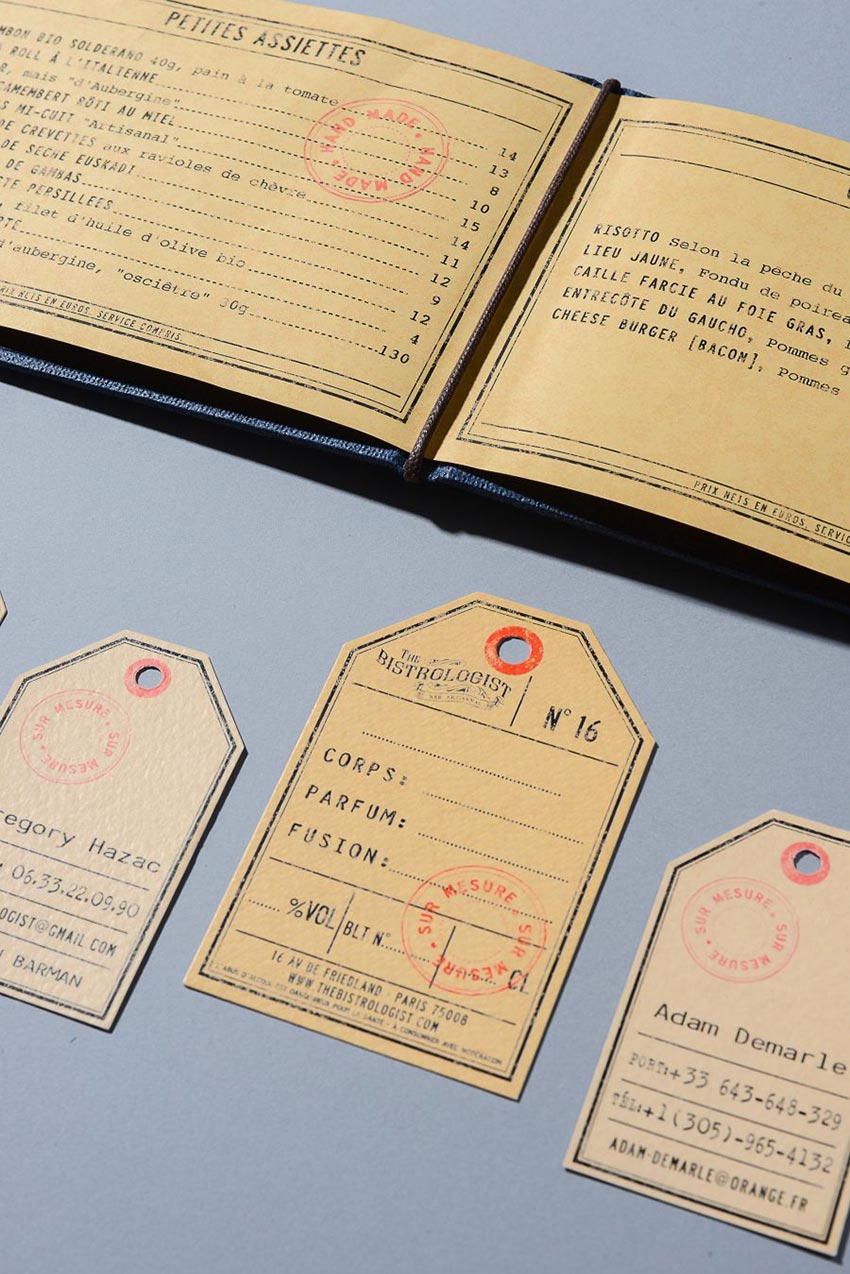 PETITES ASSIETTES
MBON BIO SOLDERANO 40g, pain à la tomate
ROLL À L'ITALIENNE 14
R, mais "d'Aubergine" 13
CAMEMBERT RÔTI AU MIEL 8
S MI-CUIT "Artisanal" 10
DE CREVETTES aux ravioles de chèvre 15
DE SECHE EUSKADI 14
DE GAMBAS 11
TE PERSILLEES 12
filet d'huile d'olive bio 9
RTE 12
d'aubergine, "osciètre" 30g 4
130
PRIX NETS EN EUROS, SERVICE COMPRIS
HAND MADE • HAND MADE •
RISOTTO Selon la pêche du
LIEU JAUNE, Fondu de poirea
CAILLE FARCIE AU FOIE GRAS,
ENTRECÔTE DU GAUCHO, Pommes g
CHEESE BURGER [BACON], Pommes
PRIX NETS EN EUROS, SERVIC
SUR MESURE • SUR MESURE •
regory Hazac
06.33.22.09.90
LOGIST@GMAIL.COM
BARMAN
THE
BISTROLOGIST
BAR ARTISANAL
N° 16
CORPS:
PARFUM:
FUSION:
%VOL
BLT N°
CL
SUR MESURE • SUR MESURE •
16 AV DE FRIEDLAND - PARIS 75008
WWW.THEBISTROLOGIST.COM
L'ABUS D'ALCOOL EST DANGEREUX POUR LA SANTÉ - À CONSOMMER AVEC MODÉRATION
SUR MESURE • SUR MESURE •
Adam Demarle
PORT:+33 643-648-329
TÉL:+1(305)-965-4132
ADAM-DEMARLE@ORANGE.FR